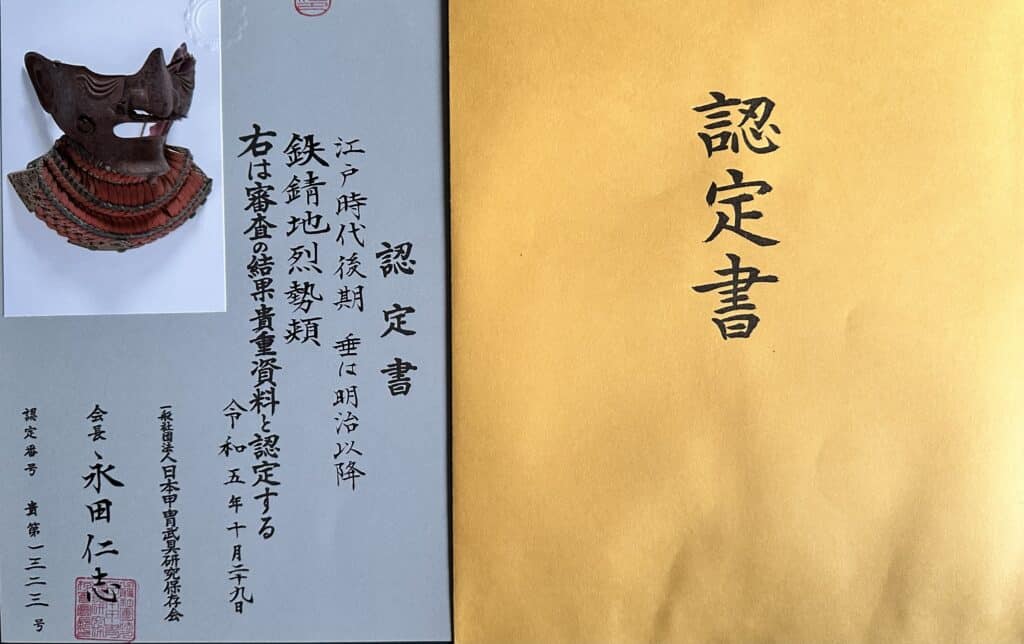 認定書
江戸時代後期 垂は明治以降
鉄錆地烈勢頬
右は審査の結果貴重資料と認定する
令和五年十月二十九日
一般社団法人日本甲冑武具研究保存会
会長 永田仁志
認定番号 貴第一三二三号
認定書